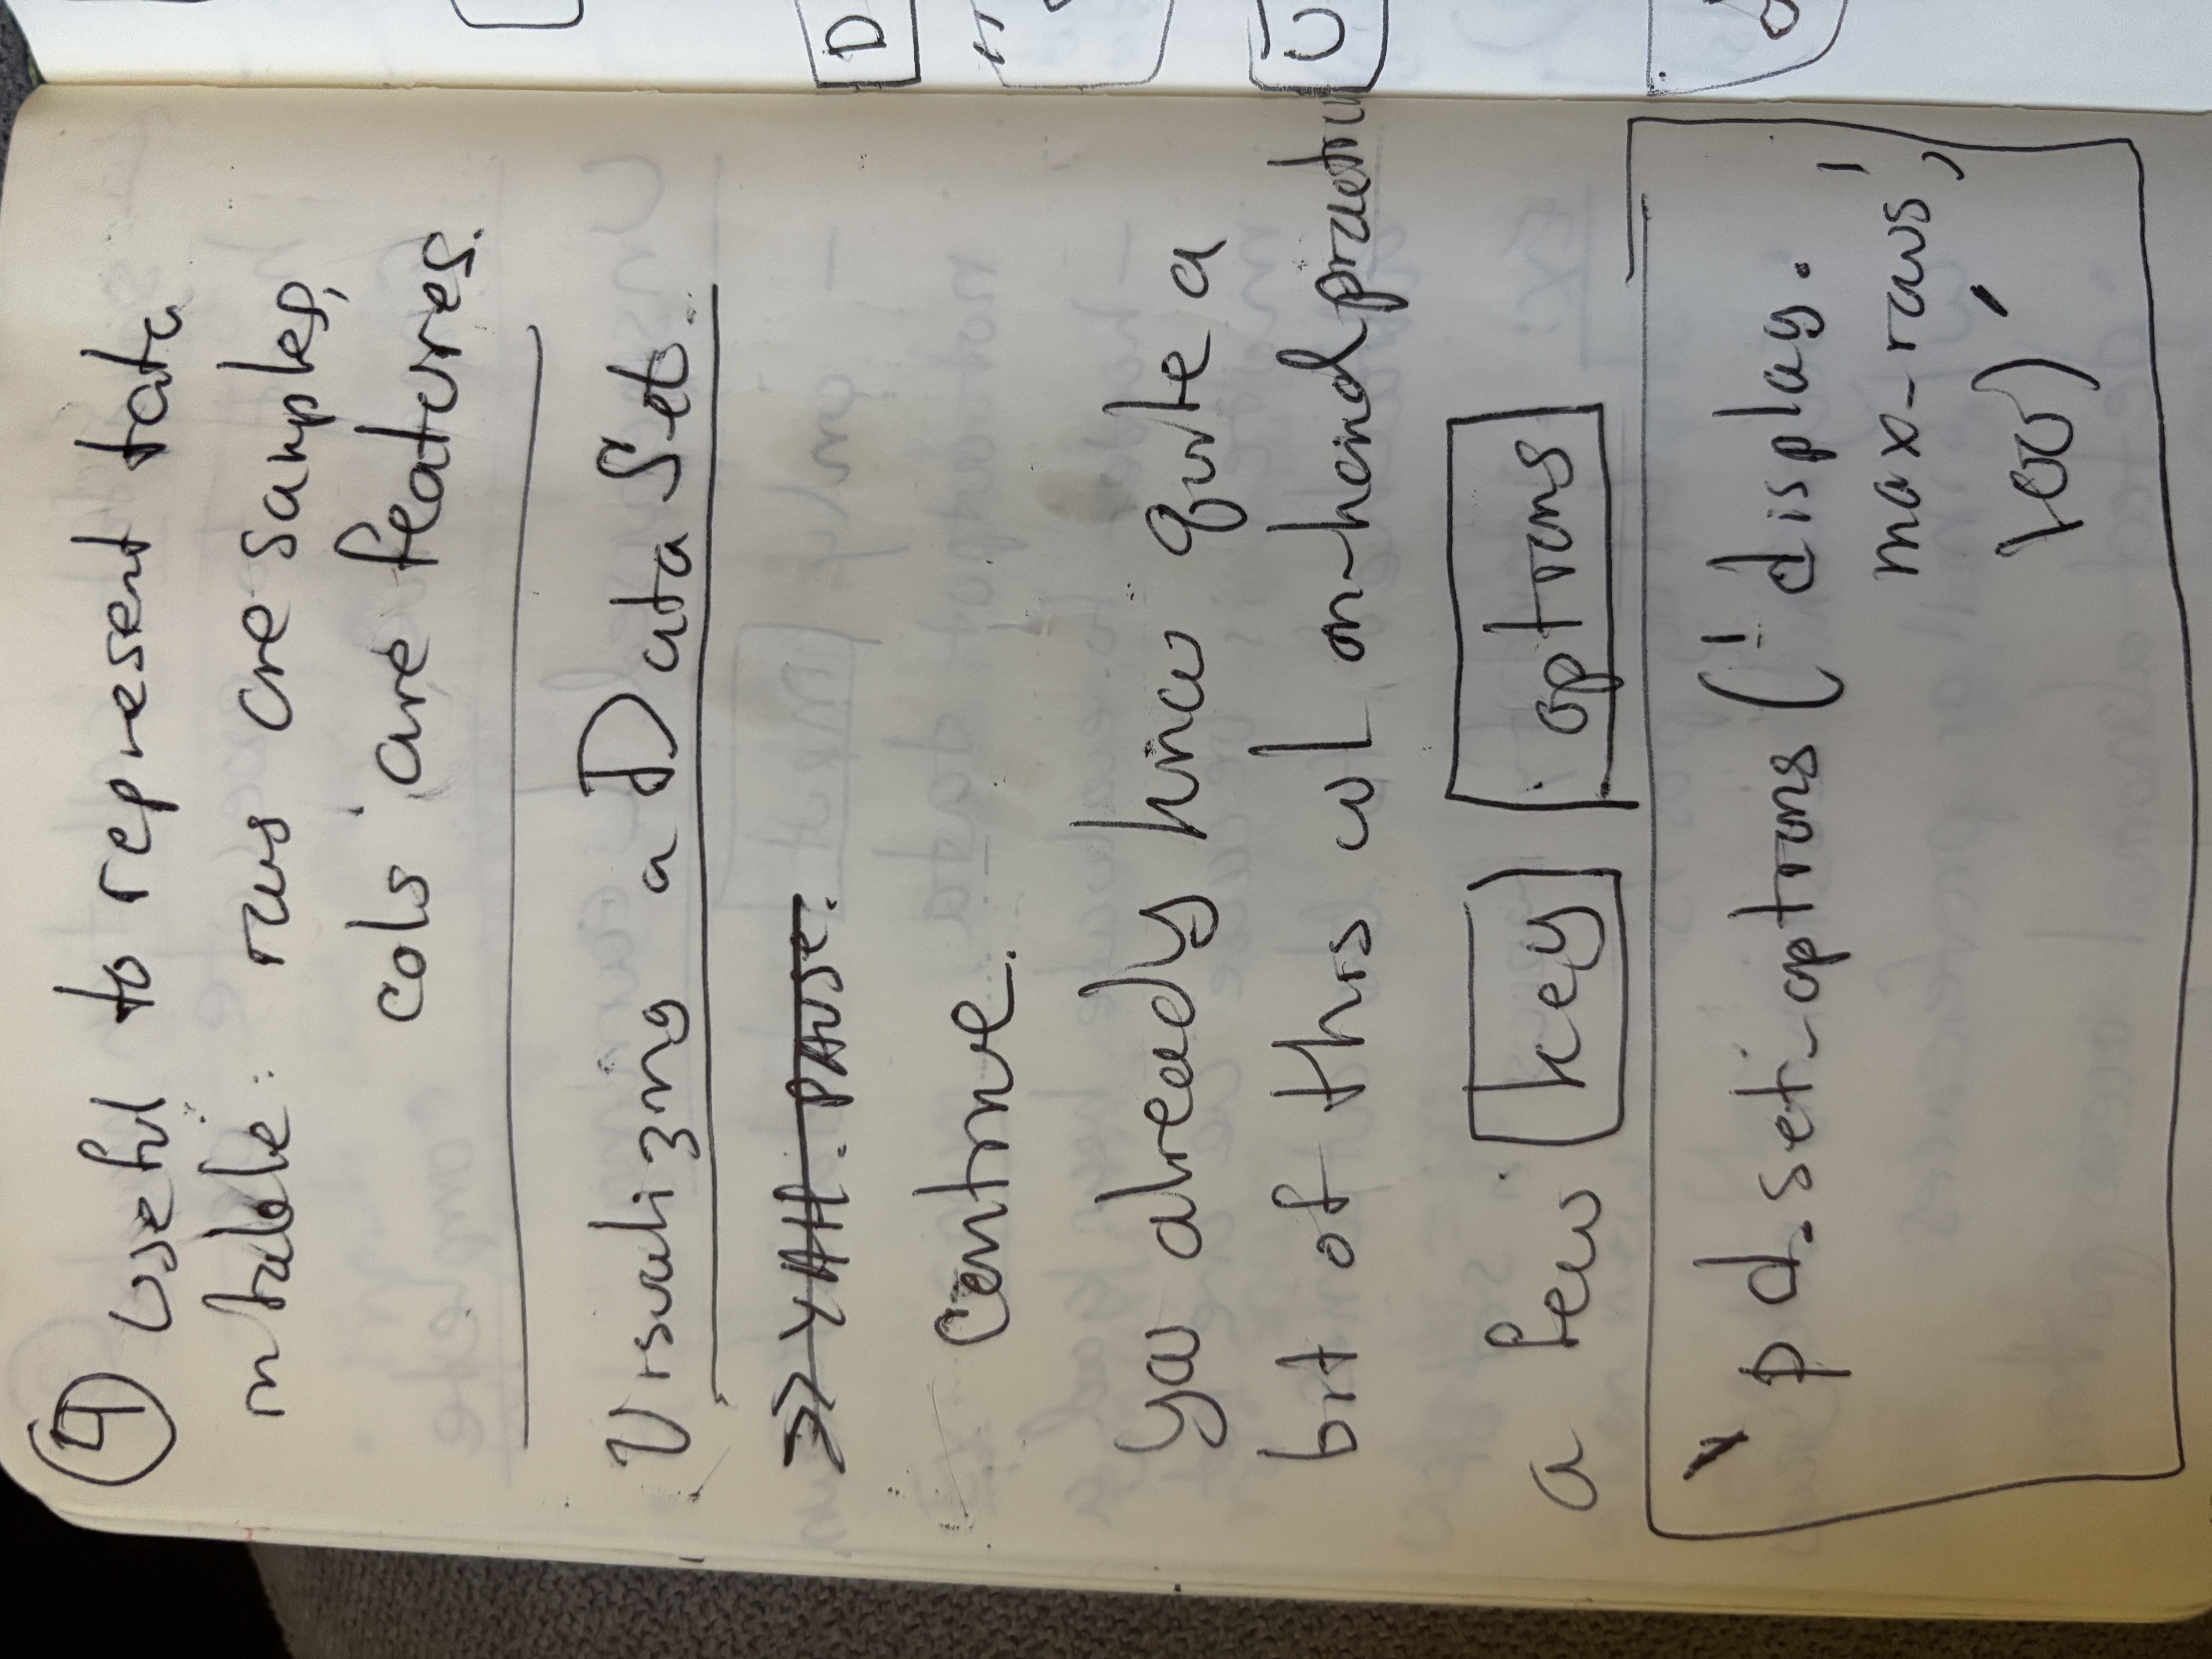 ④ Useful to represent tata
in table: rows are samples,
cols are features.
Visualizing a DataSet.
>> YAH. PAUSE.
Continue.
You already know quite a
bit of this w/ on-hand practic
a few key options
`pd.set_options('display.
max_rows',
100)`
D
C